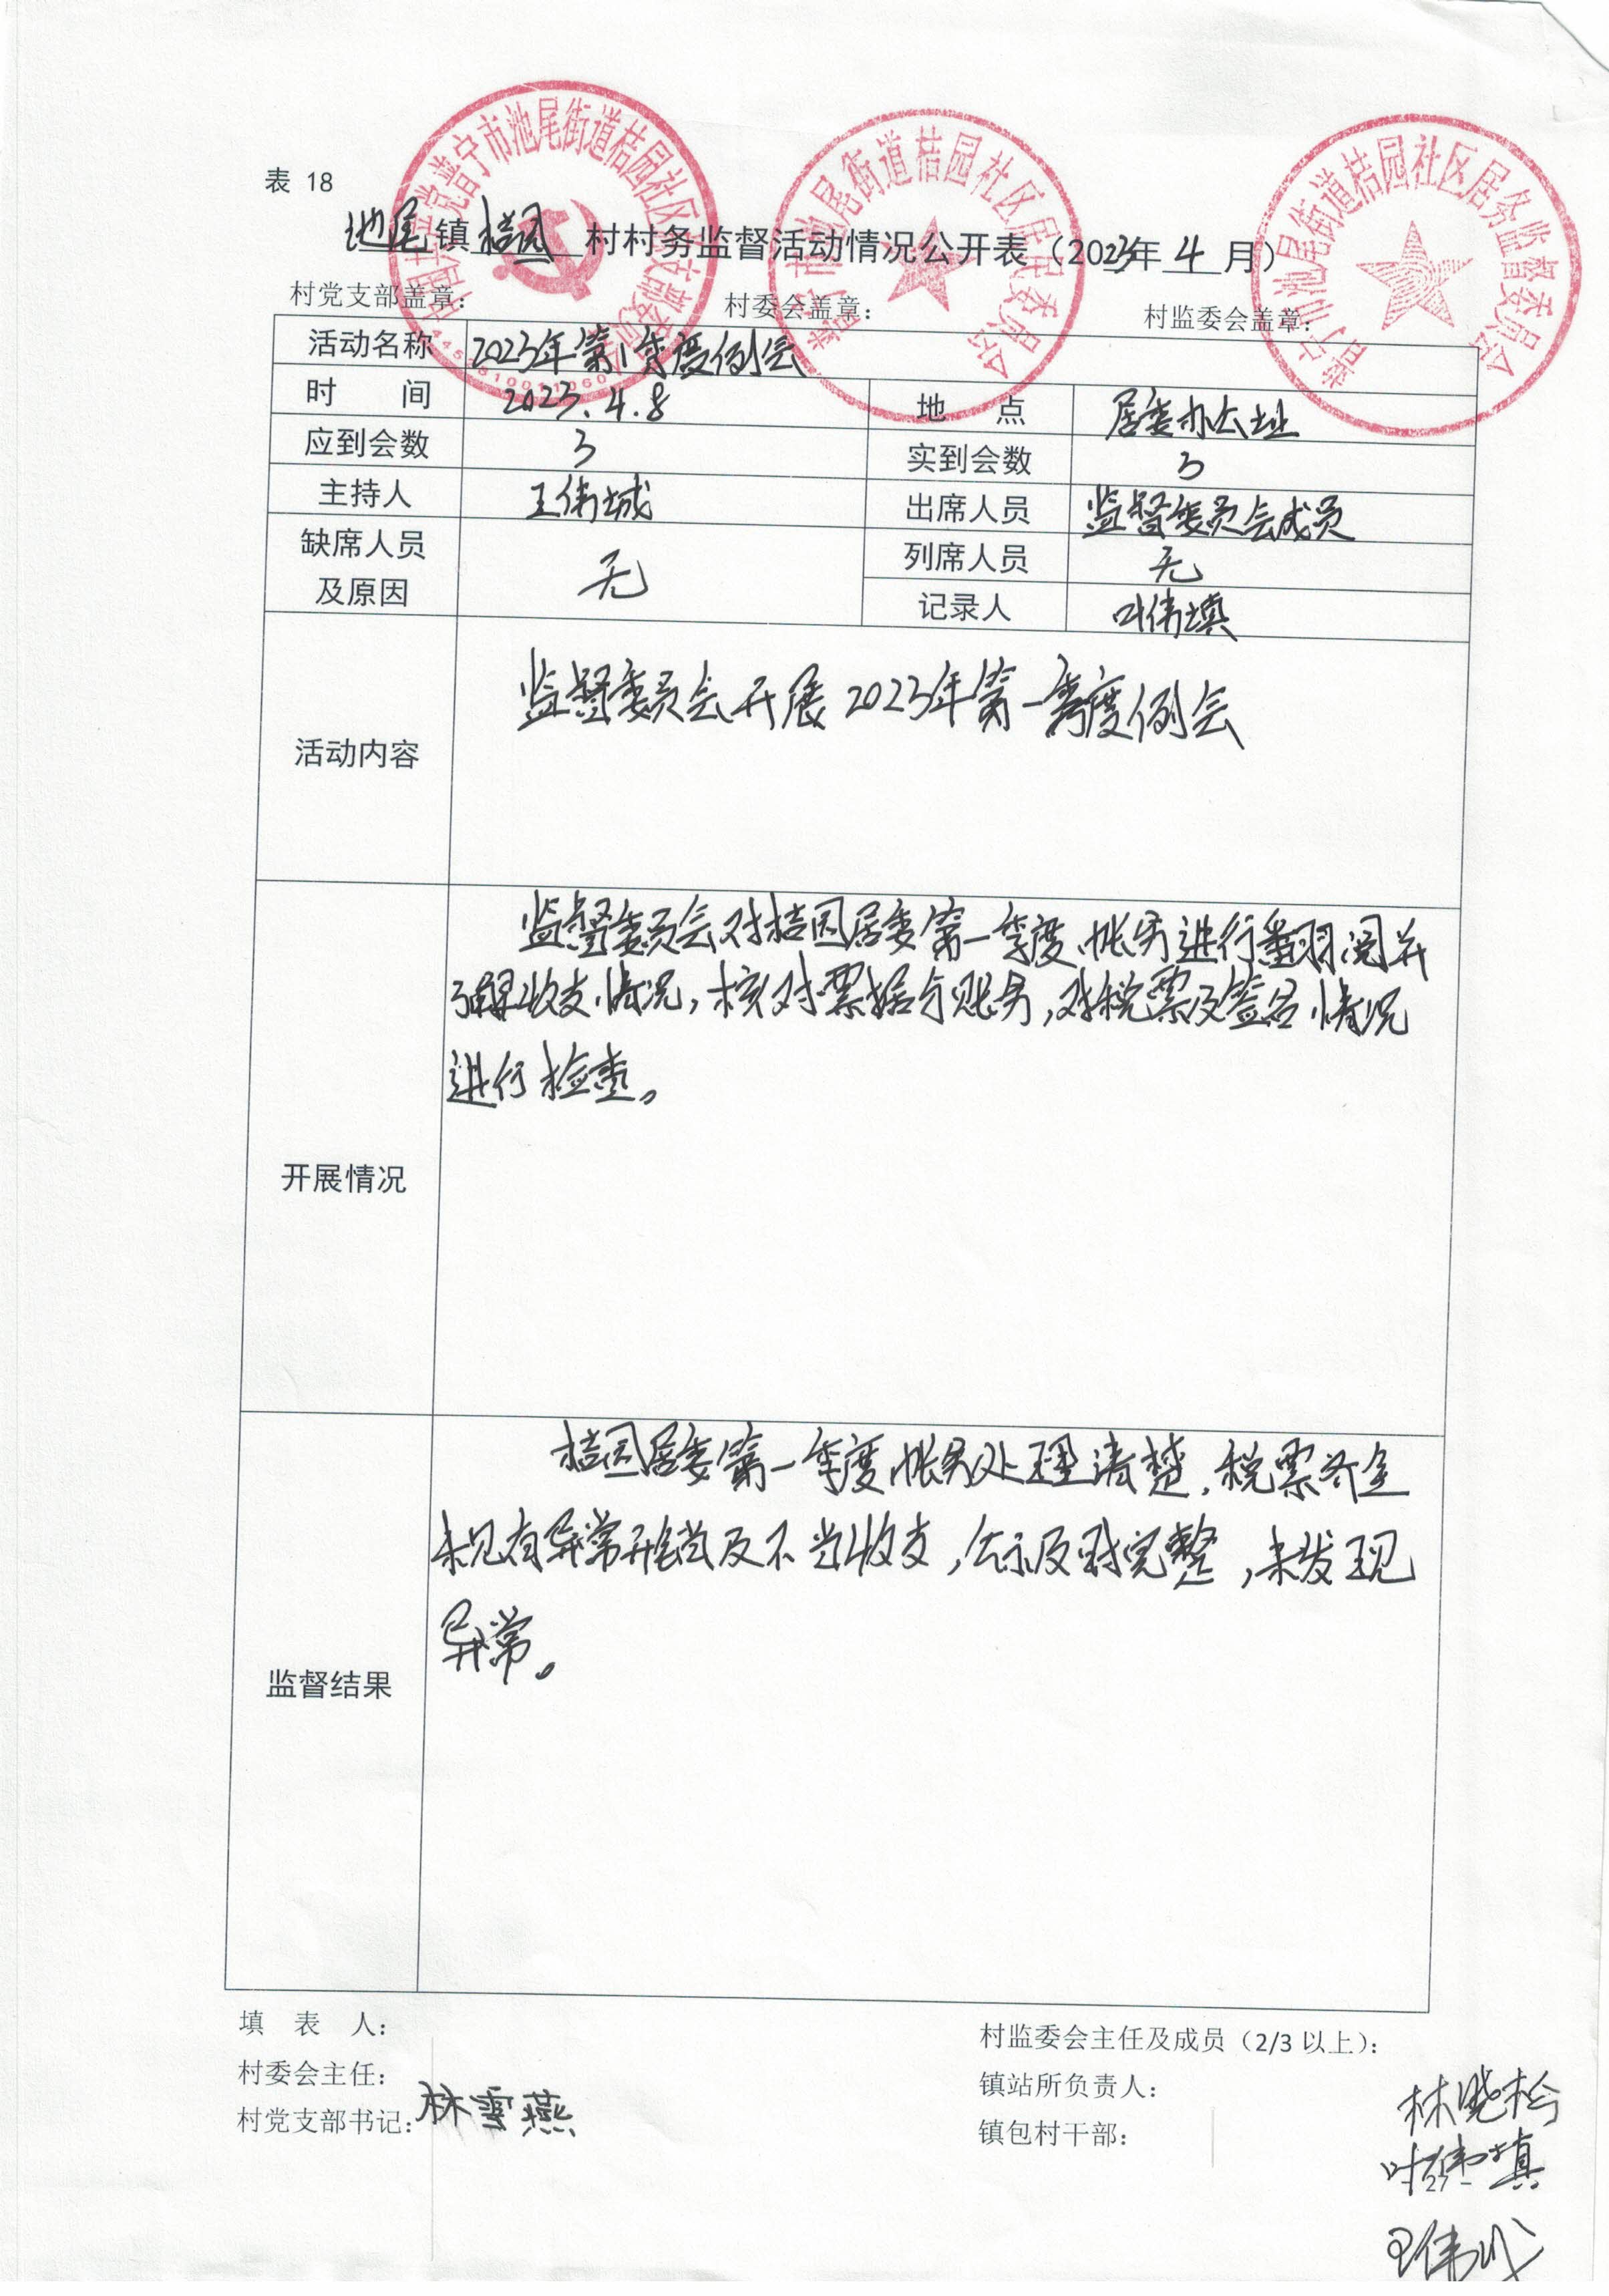 中国共产党普宁市池尾街道桔园社区支部委员会
普宁市池尾街道桔园社区居民委员会
普宁市池尾街道桔园社区居务监督委员会
表 18
池尾镇桔园村村务监督活动情况公开表（2023年 4 月）
村党支部盖章： 村委会盖章： 村监委会盖章：
活动名称 2023年第1季度例会
时 间 2023.4.8 地 点 居委办公址
应到会数 3 实到会数 3
主持人 王伟城 出席人员 监督委员会成员
缺席人员及原因 无 列席人员 无
记录人 叶伟填
活动内容 监督委员会开展2023年第一季度例会
开展情况
监督委员会对桔园居委第一季度帐务进行翻阅并
了解收支情况，核对票据与账务，对税票及签名情况
进行检查。
监督结果
桔园居委第一季度帐务处理清楚，税票齐全
未见有异常开销及不当收支，公示及时完整，未发现
异常。
填 表 人： 村监委会主任及成员（2/3 以上）：
村委会主任： 镇站所负责人：
村党支部书记：林雪燕 镇包村干部：
林晓松
叶伟填
27 -
王伟城